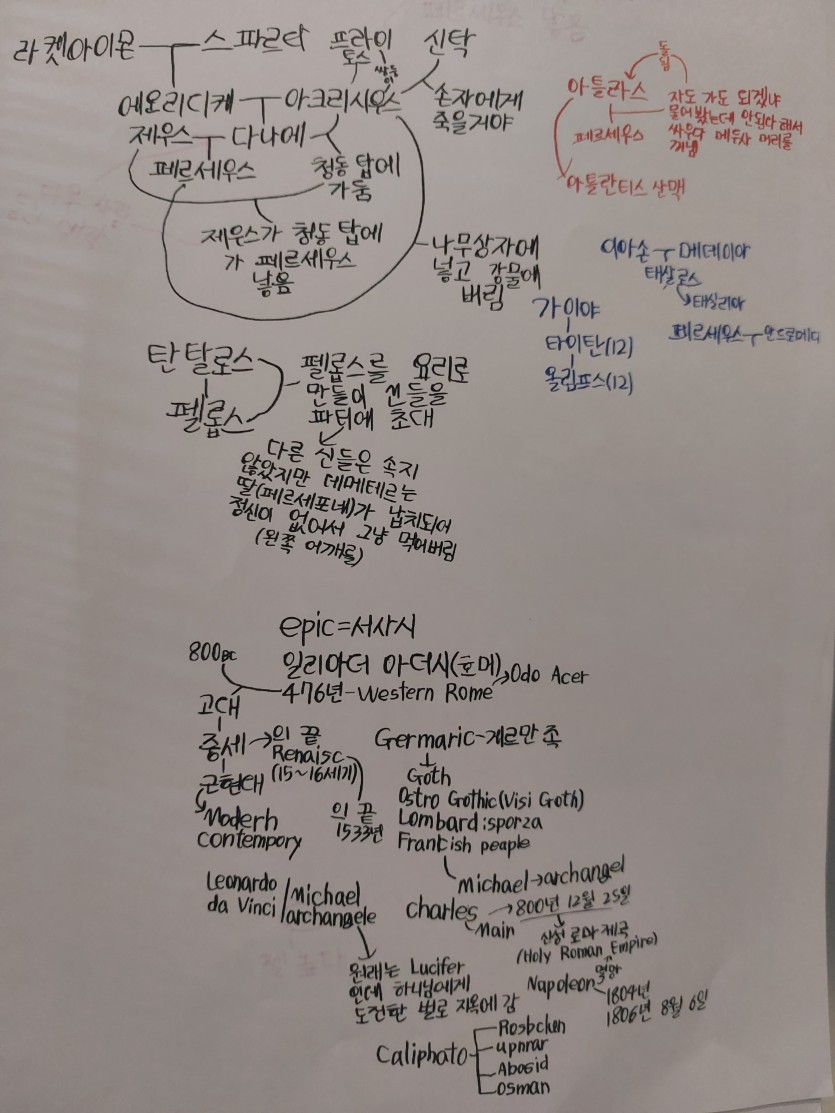 라켓아이몬
스파르타
프라이
토스
쌍둥이
신탁
에오리디케
아크리시우스
손자에게
죽을거야
제우스
다나에
페르세우스
청동 탑에
가둠
제우스가 청동 탑에
가 페르세우스
낳음
나무상자에
넣고 강물에
버림
돌
됨
아틀라스
자도 가도 되겠냐
물어봤는데 안된다 해서
싸우다 메두사 머리를
꺼냄
페르세우스
아틀란티스 산맥
이아손
메데이아
태살로스
태살리아
페르세우스
안드로메다
가이야
타이탄(12)
올림프스(12)
탄탈로스
펠롭스
펠롭스를 요리로
만들어 신들을
파티에 초대
다른 신들은 속지
않았지만 데메테르는
딸(페르세포네)가 납치되어
정신이 없어서 그냥 먹어버림
(왼쪽 어깨를)
epic=서사시
800BC
일리아더 아더시(호머)
476년-Western Rome
Odo Acer
고대
중세
의 끝
Renaisc
(15~16세기)
근현대
Modern
contempory
의 끝
1533년
Germaric-게르만 족
Goth
Ostro Gothic(Visi Goth)
Lombard:sporza
Frantish peaple
Michael→archangel
Leonardo
da Vinci
Michael
archangele
Charles
800년 12월 25일
Main
신성 로마 제국
(Holy Roman Empire)
멸망
Napoleon
1804년
1806년 8월 6일
원래는 Lucifer
인데 하나님에게
도전한 벌로 지옥에 감
Caliphato
Rosbcken
upnrar
Abosid
osman